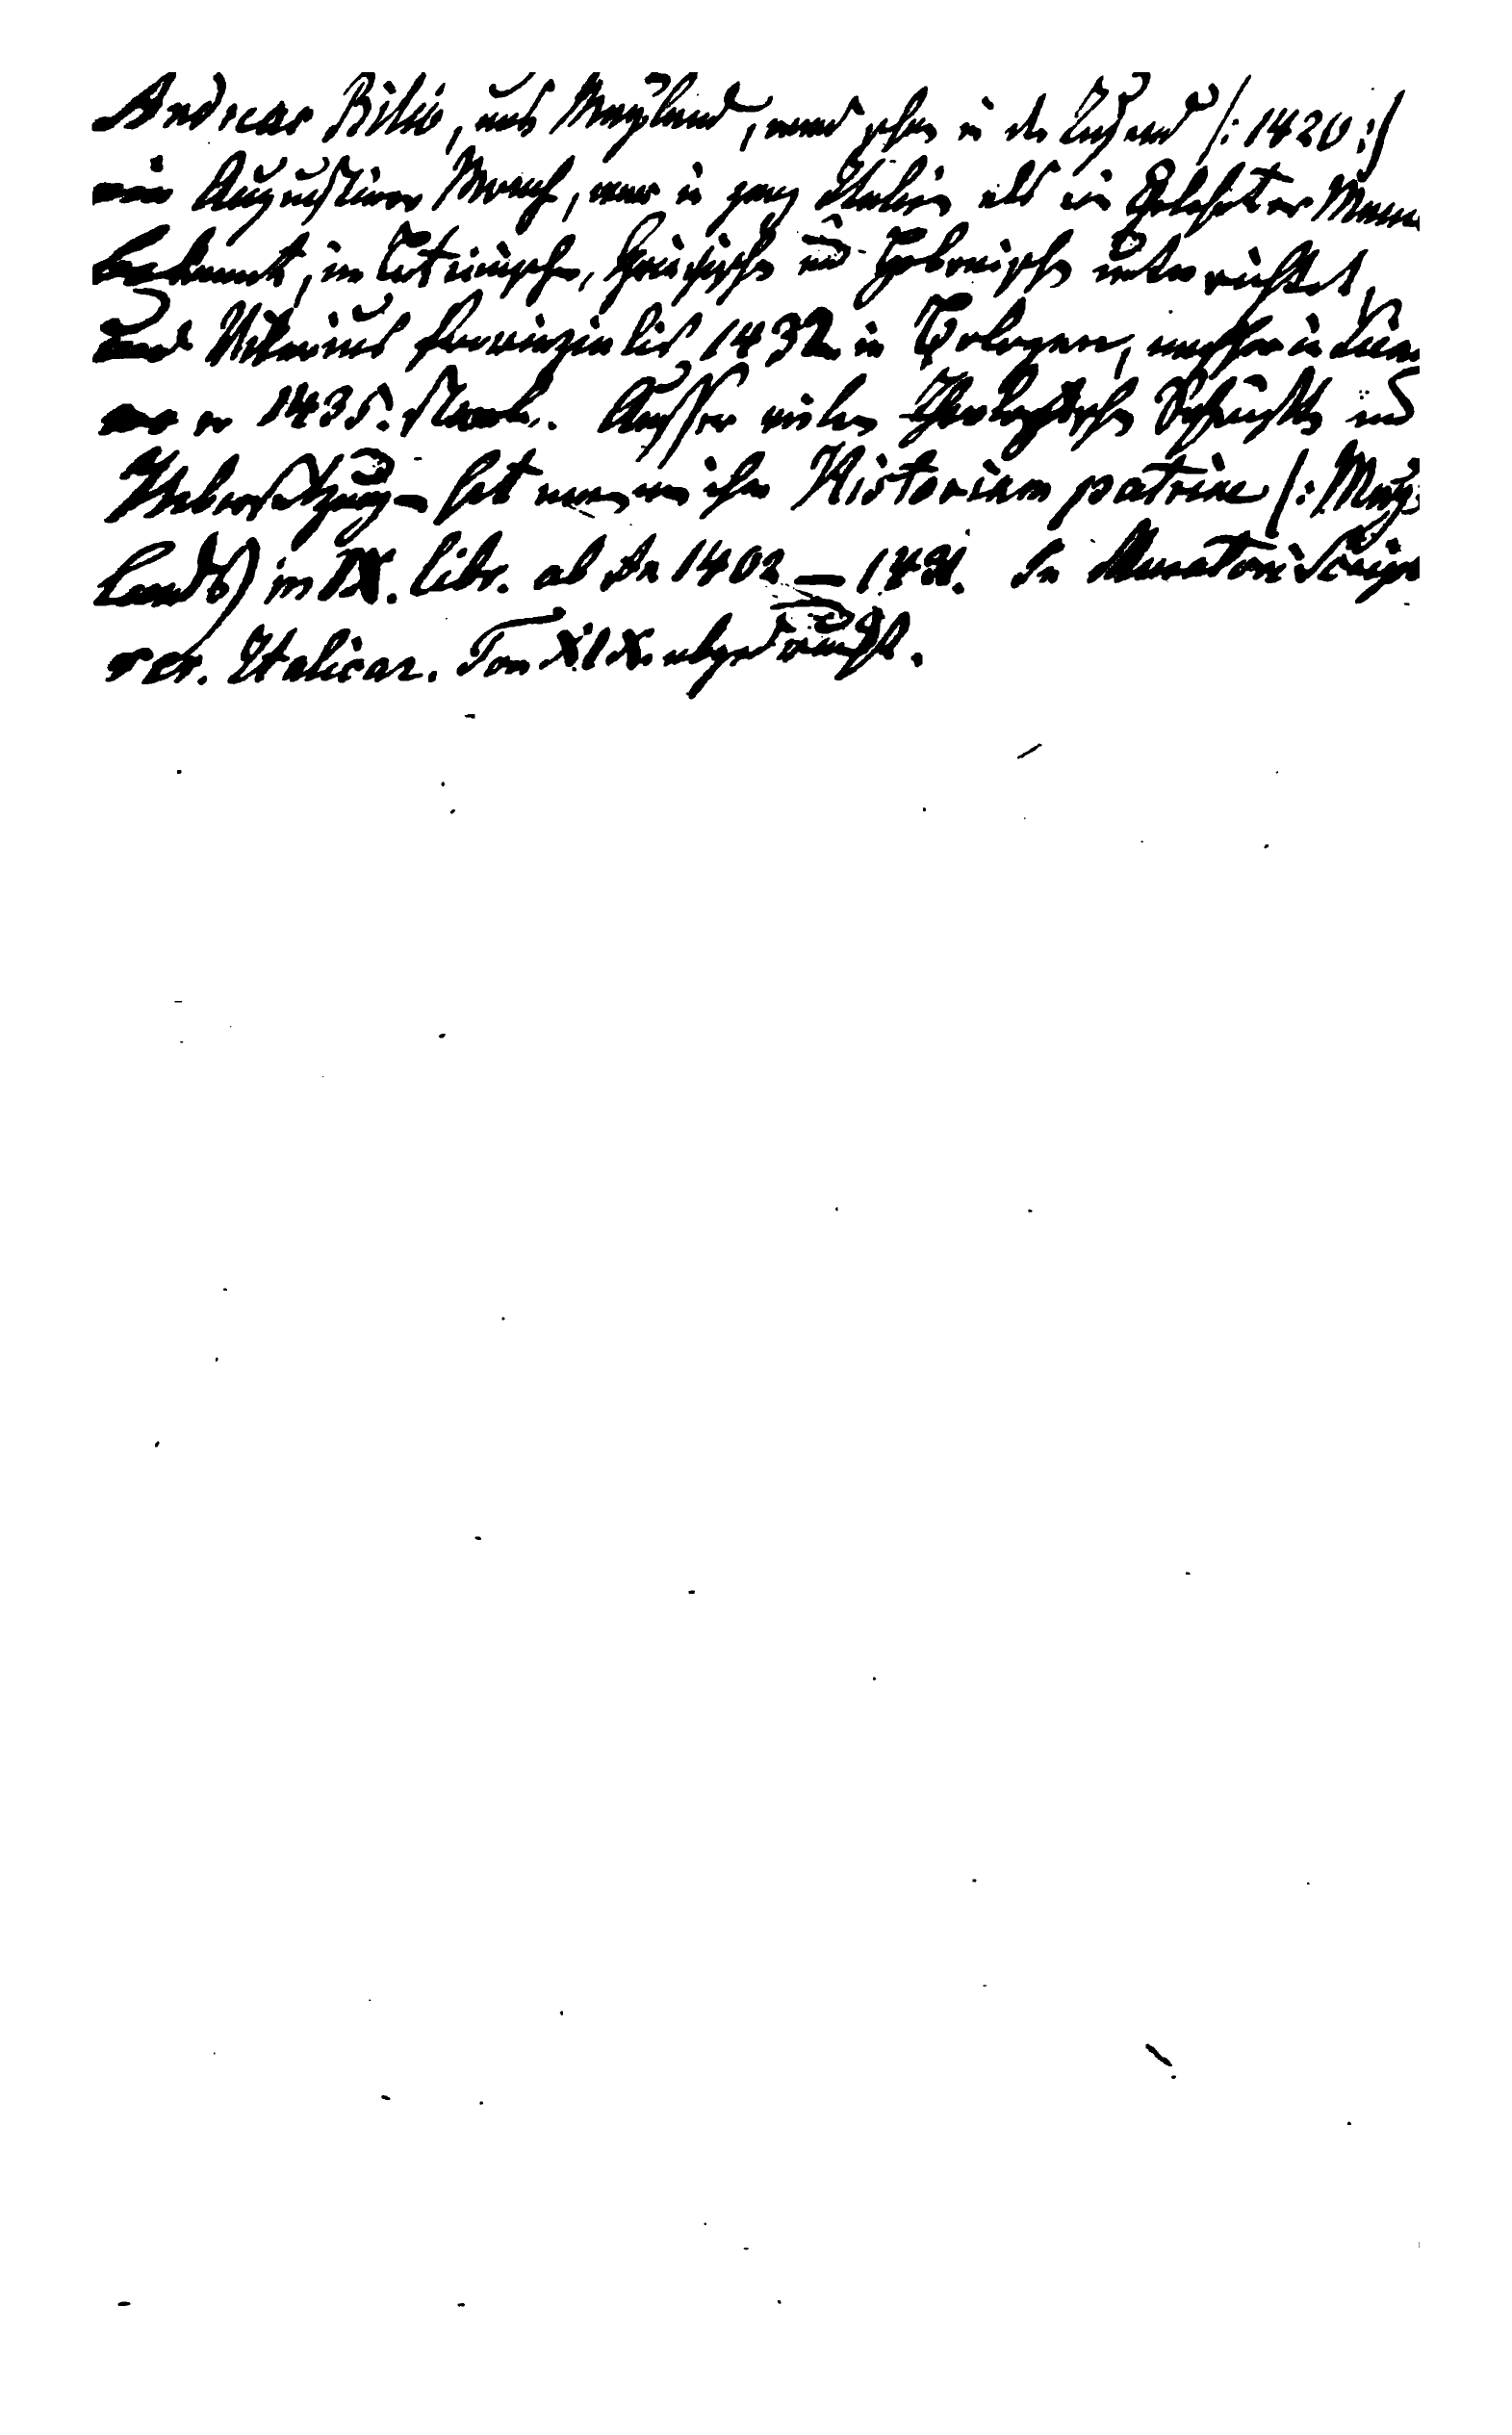 Andreas Bilio, aus Mayland, ward schon in der Jugend /: 1420 :/
ein Augustiner Mönch, war in ganz Italien als ein Gelehrter Mann
bekannt, im Lateinischen, Griechischen und Hebräischen unterrichtet,
und Vikarius provinzialis 1432 in Bologna, nachher in Siena
wo er 1435. starb. Ausser vielen theologischen Schriften und
Uebersetzungen hat man von ihm Historiam patriae /: May-
lands) in IX. libr. ab An 1402 — 1431. In Muratori Scrip
rer. Italicar. Tom XIX. abgedruckt.